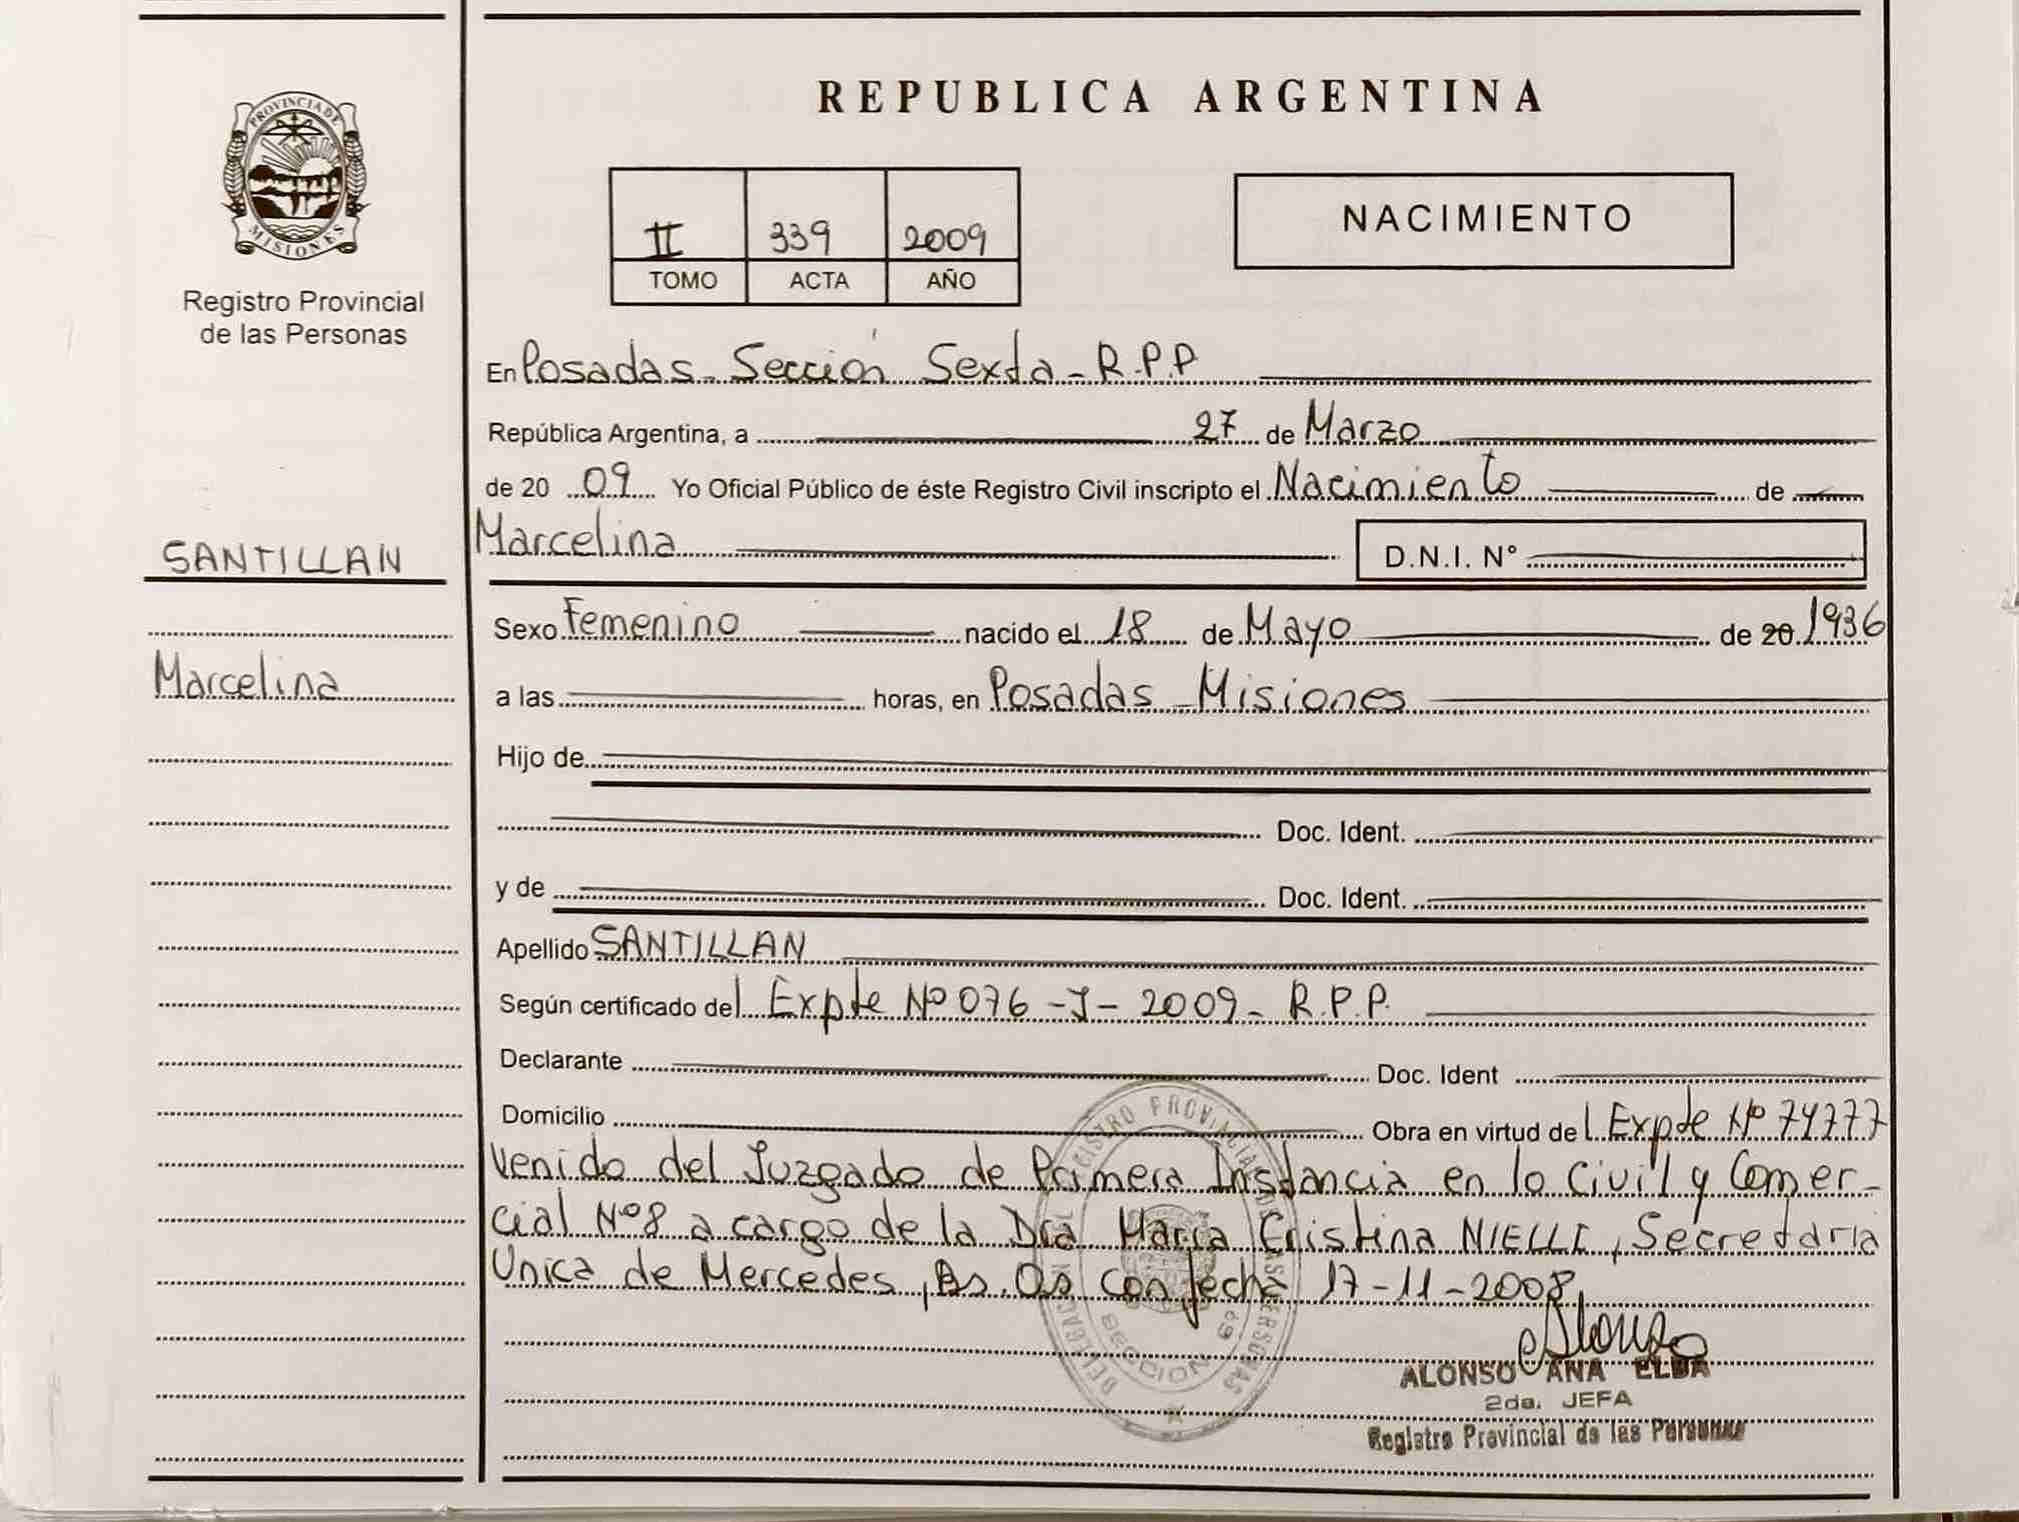 PROVINCIA DE
MISIONES
Registro Provincial
de las Personas
SANTILLAN
Marcelina
REPUBLICA ARGENTINA
II 339 2009
TOMO ACTA AÑO
NACIMIENTO
En Posadas - Sección Sexta - R.P.P
República Argentina, a 27 de Marzo
de 20 09 Yo Oficial Público de éste Registro Civil inscripto el Nacimiento de
Marcelina D.N.I. N°
Sexo Femenino nacido el 18 de Mayo de 20 1936
a las horas, en Posadas - Misiones
Hijo de
Doc. Ident.
y de Doc. Ident.
Apellido SANTILLAN
Según certificado del Expte Nº 076 - J - 2009 - R.P.P.
Declarante Doc. Ident
Domicilio Obra en virtud del Expte Nº 74777
venido del Juzgado de Primera Instancia en lo Civil y Comer-
cial Nº 8 a cargo de la Dra Maria Cristina NIELLI, Secretaria
Unica de Mercedes, Bs. As con fecha 17-11-2008
Alonso
ALONSO ANA ELBA
2da. JEFA
Registro Provincial de las Personas
DELEGACION DEL REGISTRO PROVINCIAL DE LAS PERSONAS
SECCION 6ª